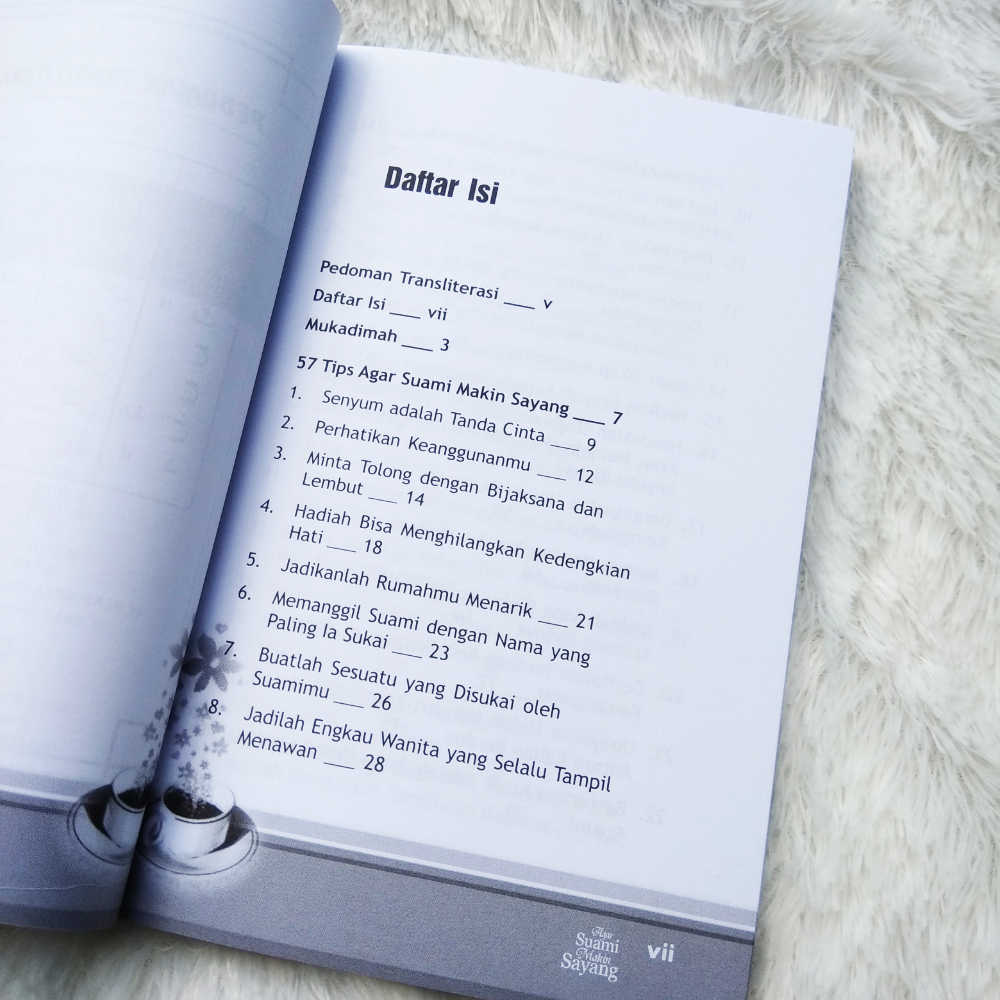 Daftar Isi
Pedoman Transliterasi ___ v
Daftar Isi ___ vii
Mukadimah ___ 3
57 Tips Agar Suami Makin Sayang ___ 7
1. Senyum adalah Tanda Cinta ___ 9
2. Perhatikan Keanggunanmu ___ 12
3. Minta Tolong dengan Bijaksana dan
Lembut ___ 14
4. Hadiah Bisa Menghilangkan Kedengkian
Hati ___ 18
5. Jadikanlah Rumahmu Menarik ___ 21
6. Memanggil Suami dengan Nama yang
Paling Ia Sukai ___ 23
7. Buatlah Sesuatu yang Disukai oleh
Suamimu ___ 26
8. Jadilah Engkau Wanita yang Selalu Tampil
Menawan ___ 28
Agar
Suami
Makin
Sayang
vii